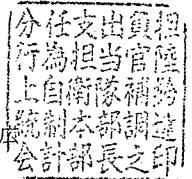 分任支出負担
行為担当官陸
上自衛隊補給
統制本部調達
会計部長之印